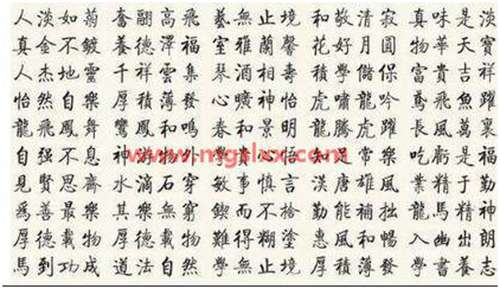 人淡如菊 奮翮高飛 藝無止境 和敬清寂 真味是淡
真金不鍍 養德澤福 室雅蘭馨 花好月圓 物華天寶
人杰地靈 千祥雲集 琴 相壽 學儲 富貴吉祥
怡然自樂 厚積薄發 心曠神怡 虎嘯龍吟 鳶飛魚躍
龍飛鳳舞 鸞鳳和鳴 春和景明 龍騰虎躍 長風萬裏
自强不息 神游物外 心 怡 知足常樂 吃虧是福
見賢思齊 水滴石穿 事慎言 漢唐雄風 業精于勤
為善最樂 其樂無窮 鍥而不捨 勤能補拙 龍馬精神
厚德載物 厚德載物 難得糊塗 惠風和暢 入幽出朗
馬到功成 道法自然 學無止境 厚積薄發 學書養志